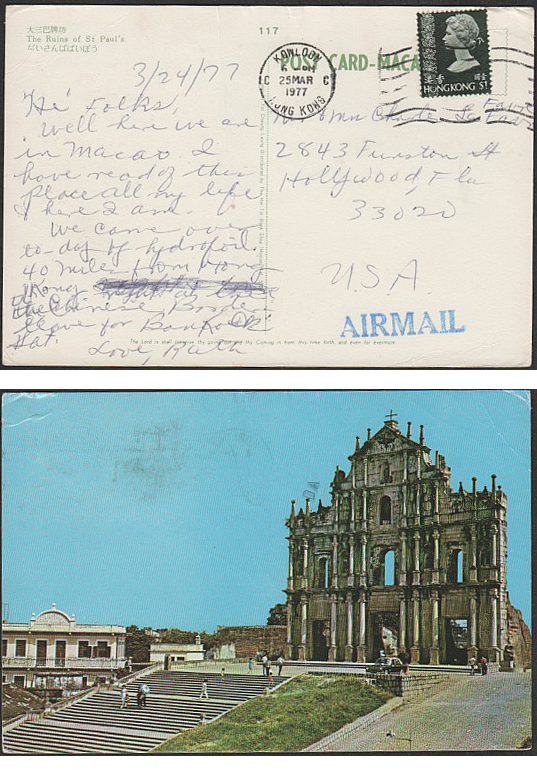 大三巴牌坊
The Ruins of St Paul's
だいさんぱぱいぼう
117
POST CARD-MACA
KOWLOON
6 PM
C 25 MAR C
1977
HONG KONG
香港
HONG KONG $1
3/24/77
Hi Folks,
Well here we are
in Macao. I
have read of this
place all my life
& here I am.
We came over
to-day by hydrofoil
40 miles from Hong
Kong
the Chinese Border
leave for Bankock
Sat.
Love, Ruth
2843 Funston St
Hollywood, Fla
33020
U.S.A.
AIRMAIL
The Lord is shall preserve thy going out and thy Coming in from this time forth, and even for evermore